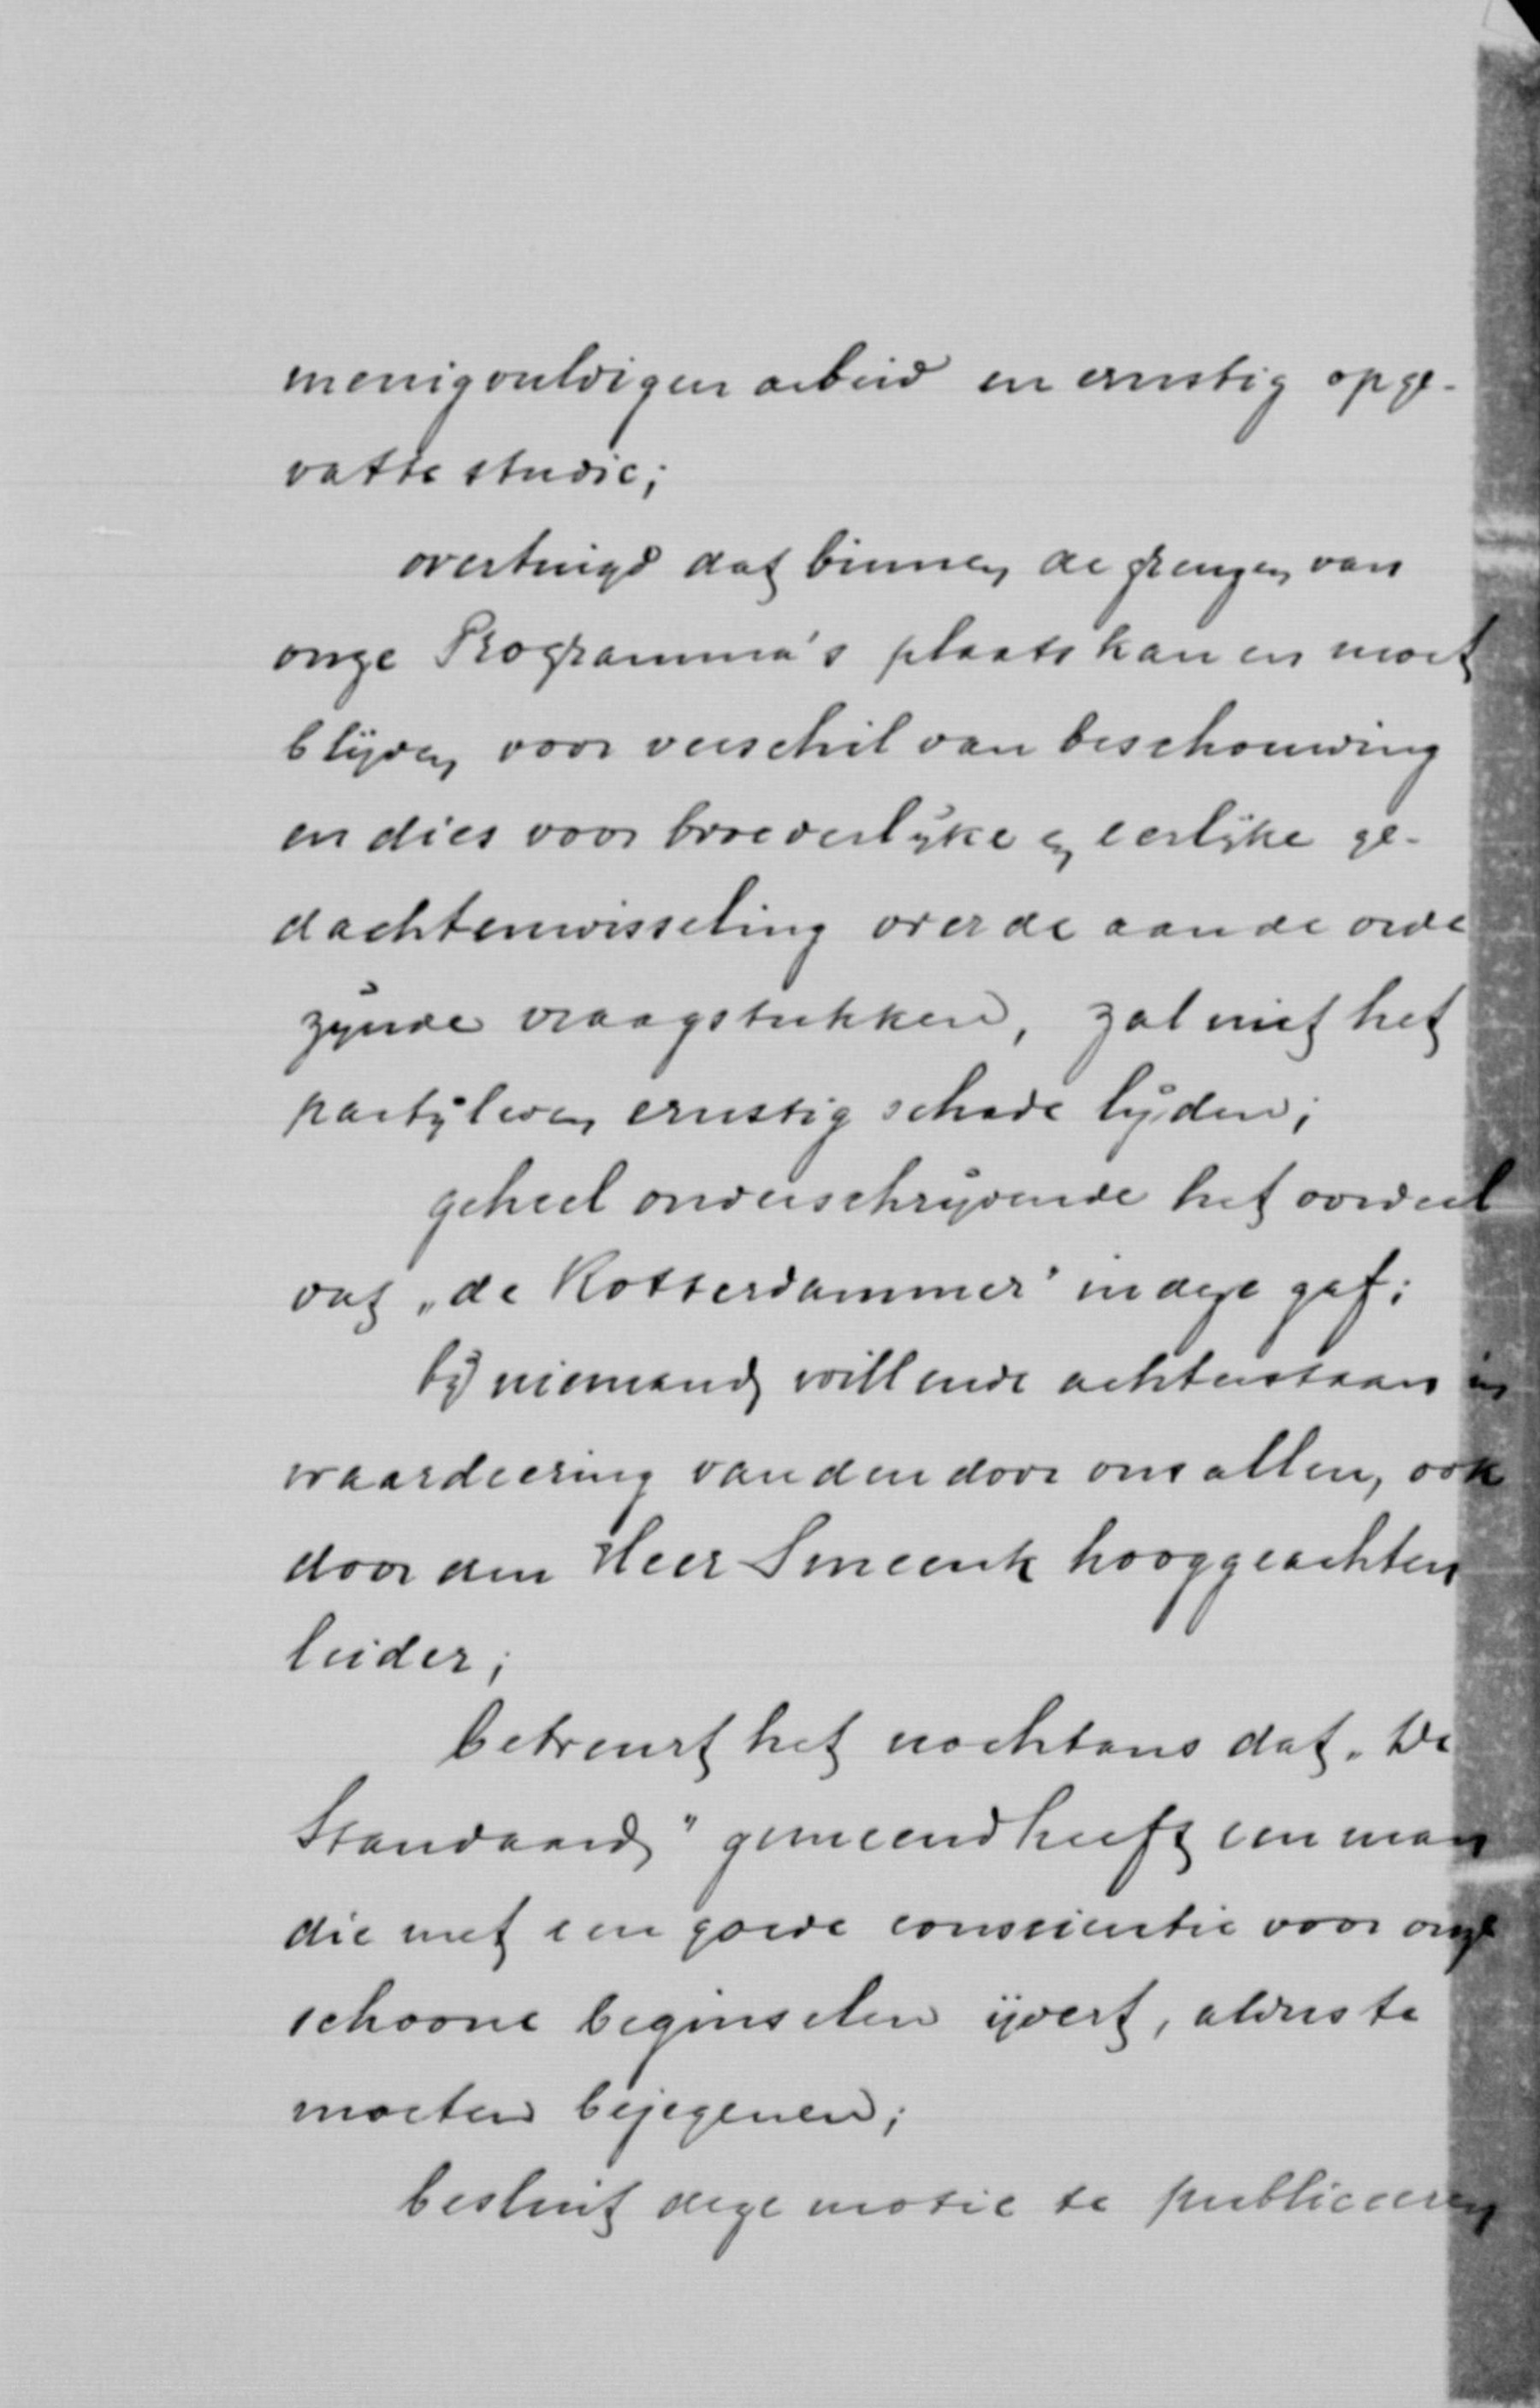 menigvuldigen arbeid en ernstig opge-
vatte studie;
overtuigd dat binnen de grenzen van
onze Programma's plaats kan en moet
blijven voor verschil van beschouwing
en dies voor broederlijke en eerlijke ge-
dachtenwisseling over de aan de orde
zijnde vraagstukken, zal niet het
partijleven ernstig schade lijden;
geheel onderschrijvende het oordeel
dat „de Rotterdammer" in deze gaf;
bij niemand willende achterstaan in
waardeering van den door ons allen, ook
door den Heer Smeenk hooggeachten
leider;
betreurt het nochtans dat „De
Standaard" gemeend heeft een man
die met een goede conscientie voor onze
schoone beginselen ijvert, aldus te
moeten bejegenen;
besluit deze motie te publiceeren